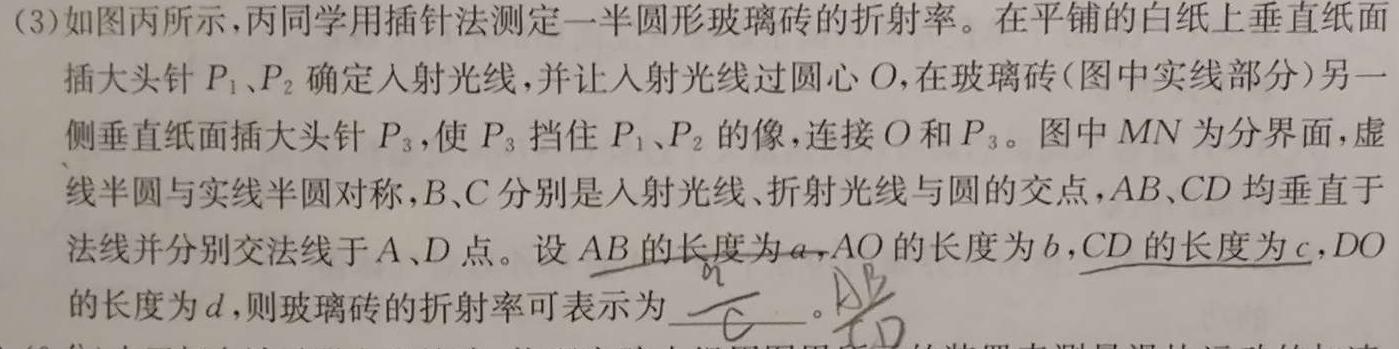 (3)如图丙所示,丙同学用插针法测定一半圆形玻璃砖的折射率。在平铺的白纸上垂直纸面
插大头针 P₁、P₂ 确定入射光线,并让入射光线过圆心 O,在玻璃砖(图中实线部分)另一
侧垂直纸面插大头针 P₃,使 P₃ 挡住 P₁、P₂ 的像,连接 O 和 P₃。图中 MN 为分界面,虚
线半圆与实线半圆对称,B、C 分别是入射光线、折射光线与圆的交点,AB、CD 均垂直于
法线并分别交法线于 A、D 点。设 AB 的长度为 a,AO 的长度为 b,CD 的长度为 c,DO
的长度为 d,则玻璃砖的折射率可表示为 a/C 。 AB/CD